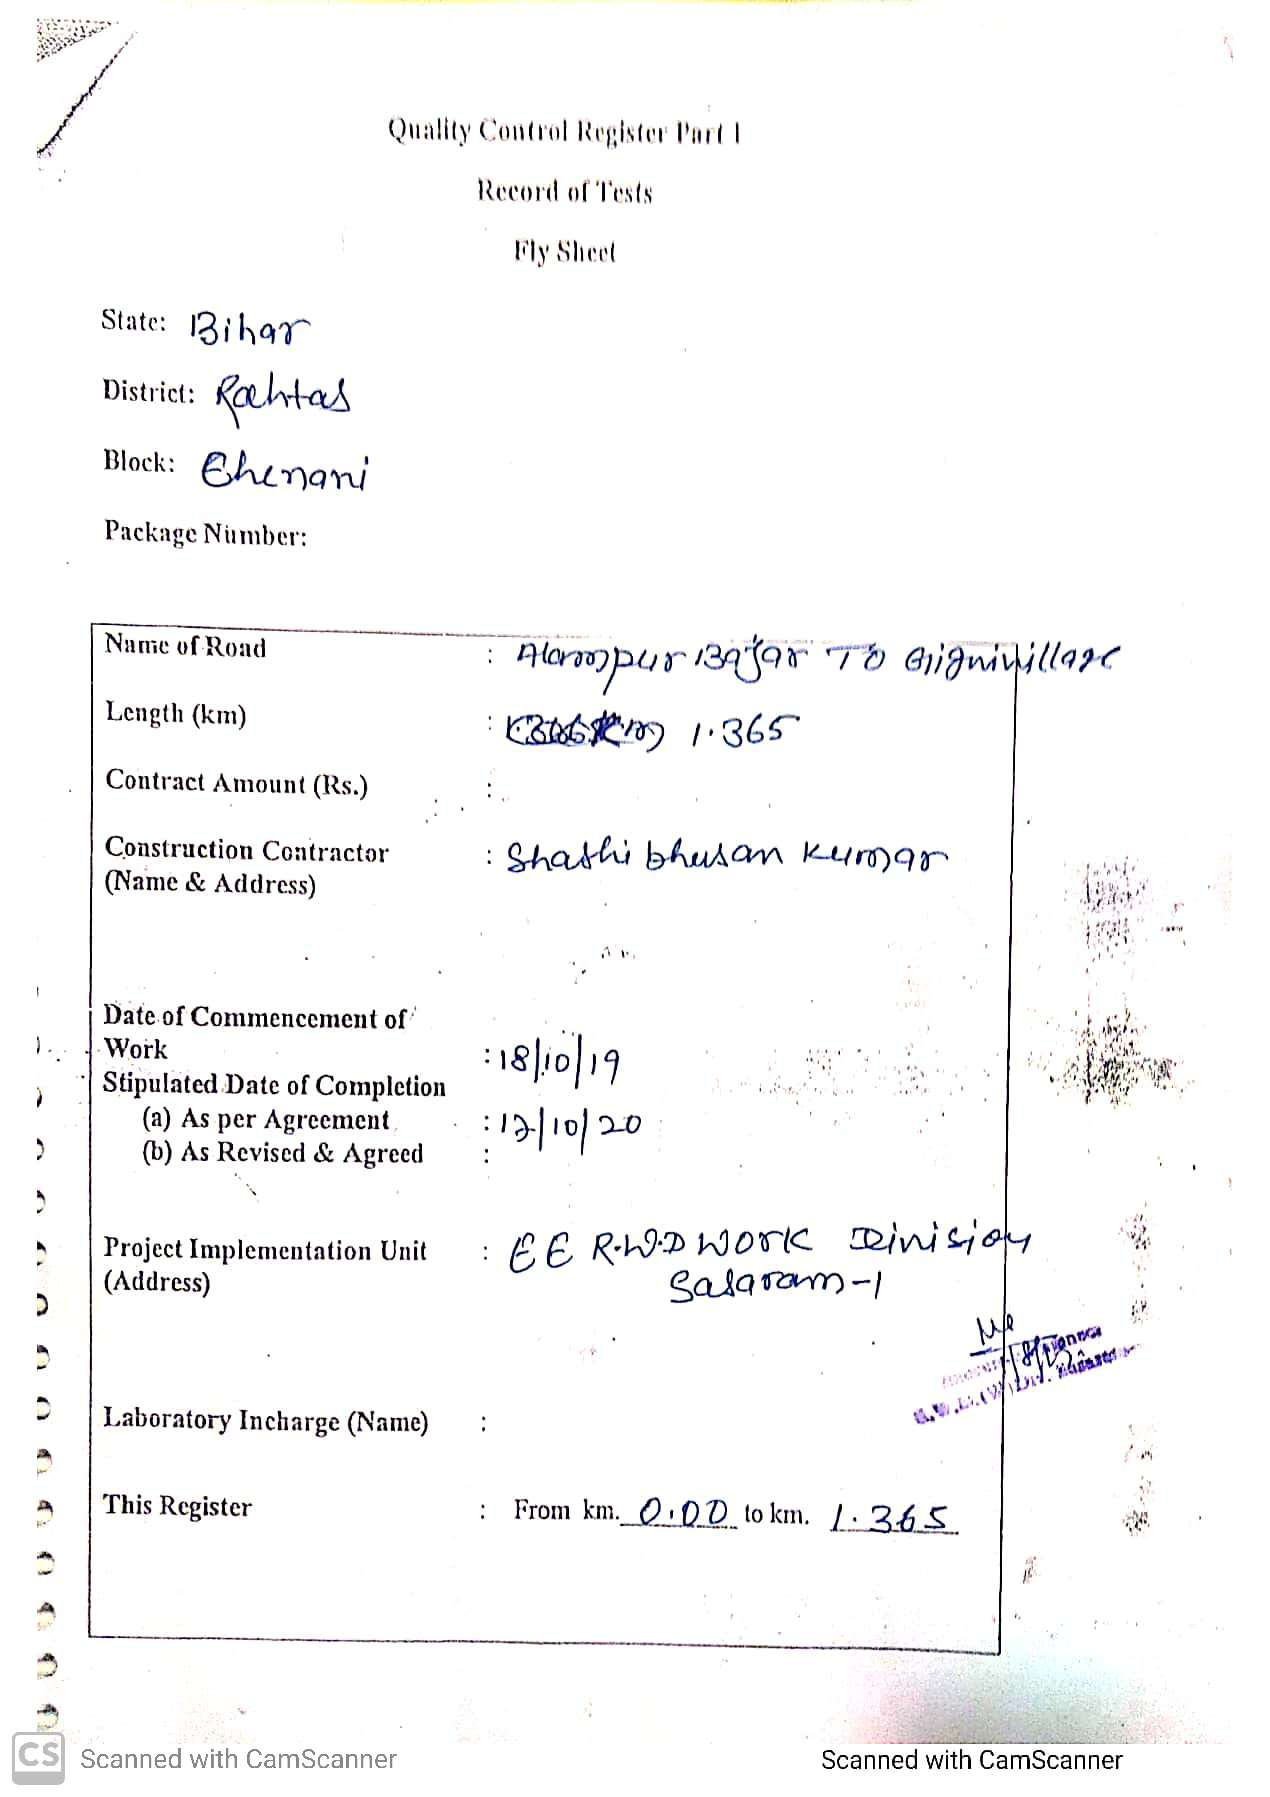 Quality Control Register Part I
Record of Tests
Fly Sheet
State: Bihar
District: Rohtas
Block: Chenari
Package Number:
Name of Road : Alampur Bajar To Gijnivillage
Length (km) : 1.365
Contract Amount (Rs.) :
Construction Contractor : Shashi bhusan Kumar
(Name & Address)
Date of Commencement of
Work : 18/10/19
Stipulated Date of Completion
(a) As per Agreement : 17/10/20
(b) As Revised & Agreed :
Project Implementation Unit : EE R.W.D Work Division
(Address) Sasaram-1
Laboratory Incharge (Name) :
This Register : From km. 0.00 to km. 1.365
CS Scanned with CamScanner
Scanned with CamScanner